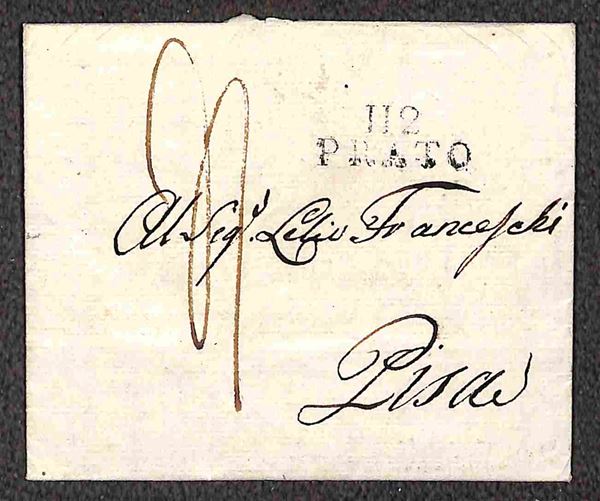 112
PRATO
Al Sig.r Lelio Franceschi
Pisa